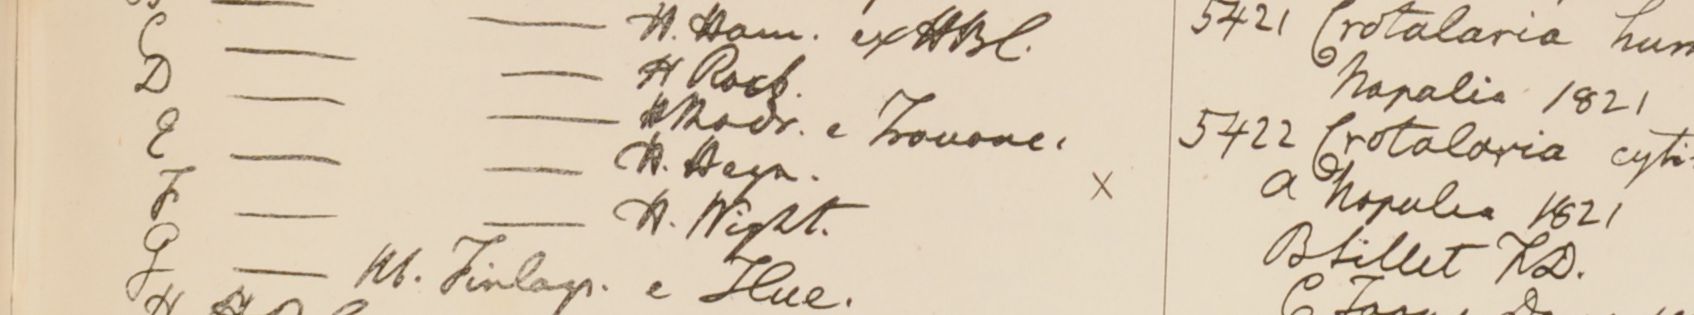 C — — H. Ham. ex HBC.
D — — H Roxb.
E — — H Madr. e Travanc.
F — — H. Heyn.
G — — H. Wight.
— Hb. Finlays. e Hue.
H H
5421 Crotalaria hum
Napalia 1821
5422 Crotalaria cyti
a Napalia 1821
B Sillet F.D.
C
x